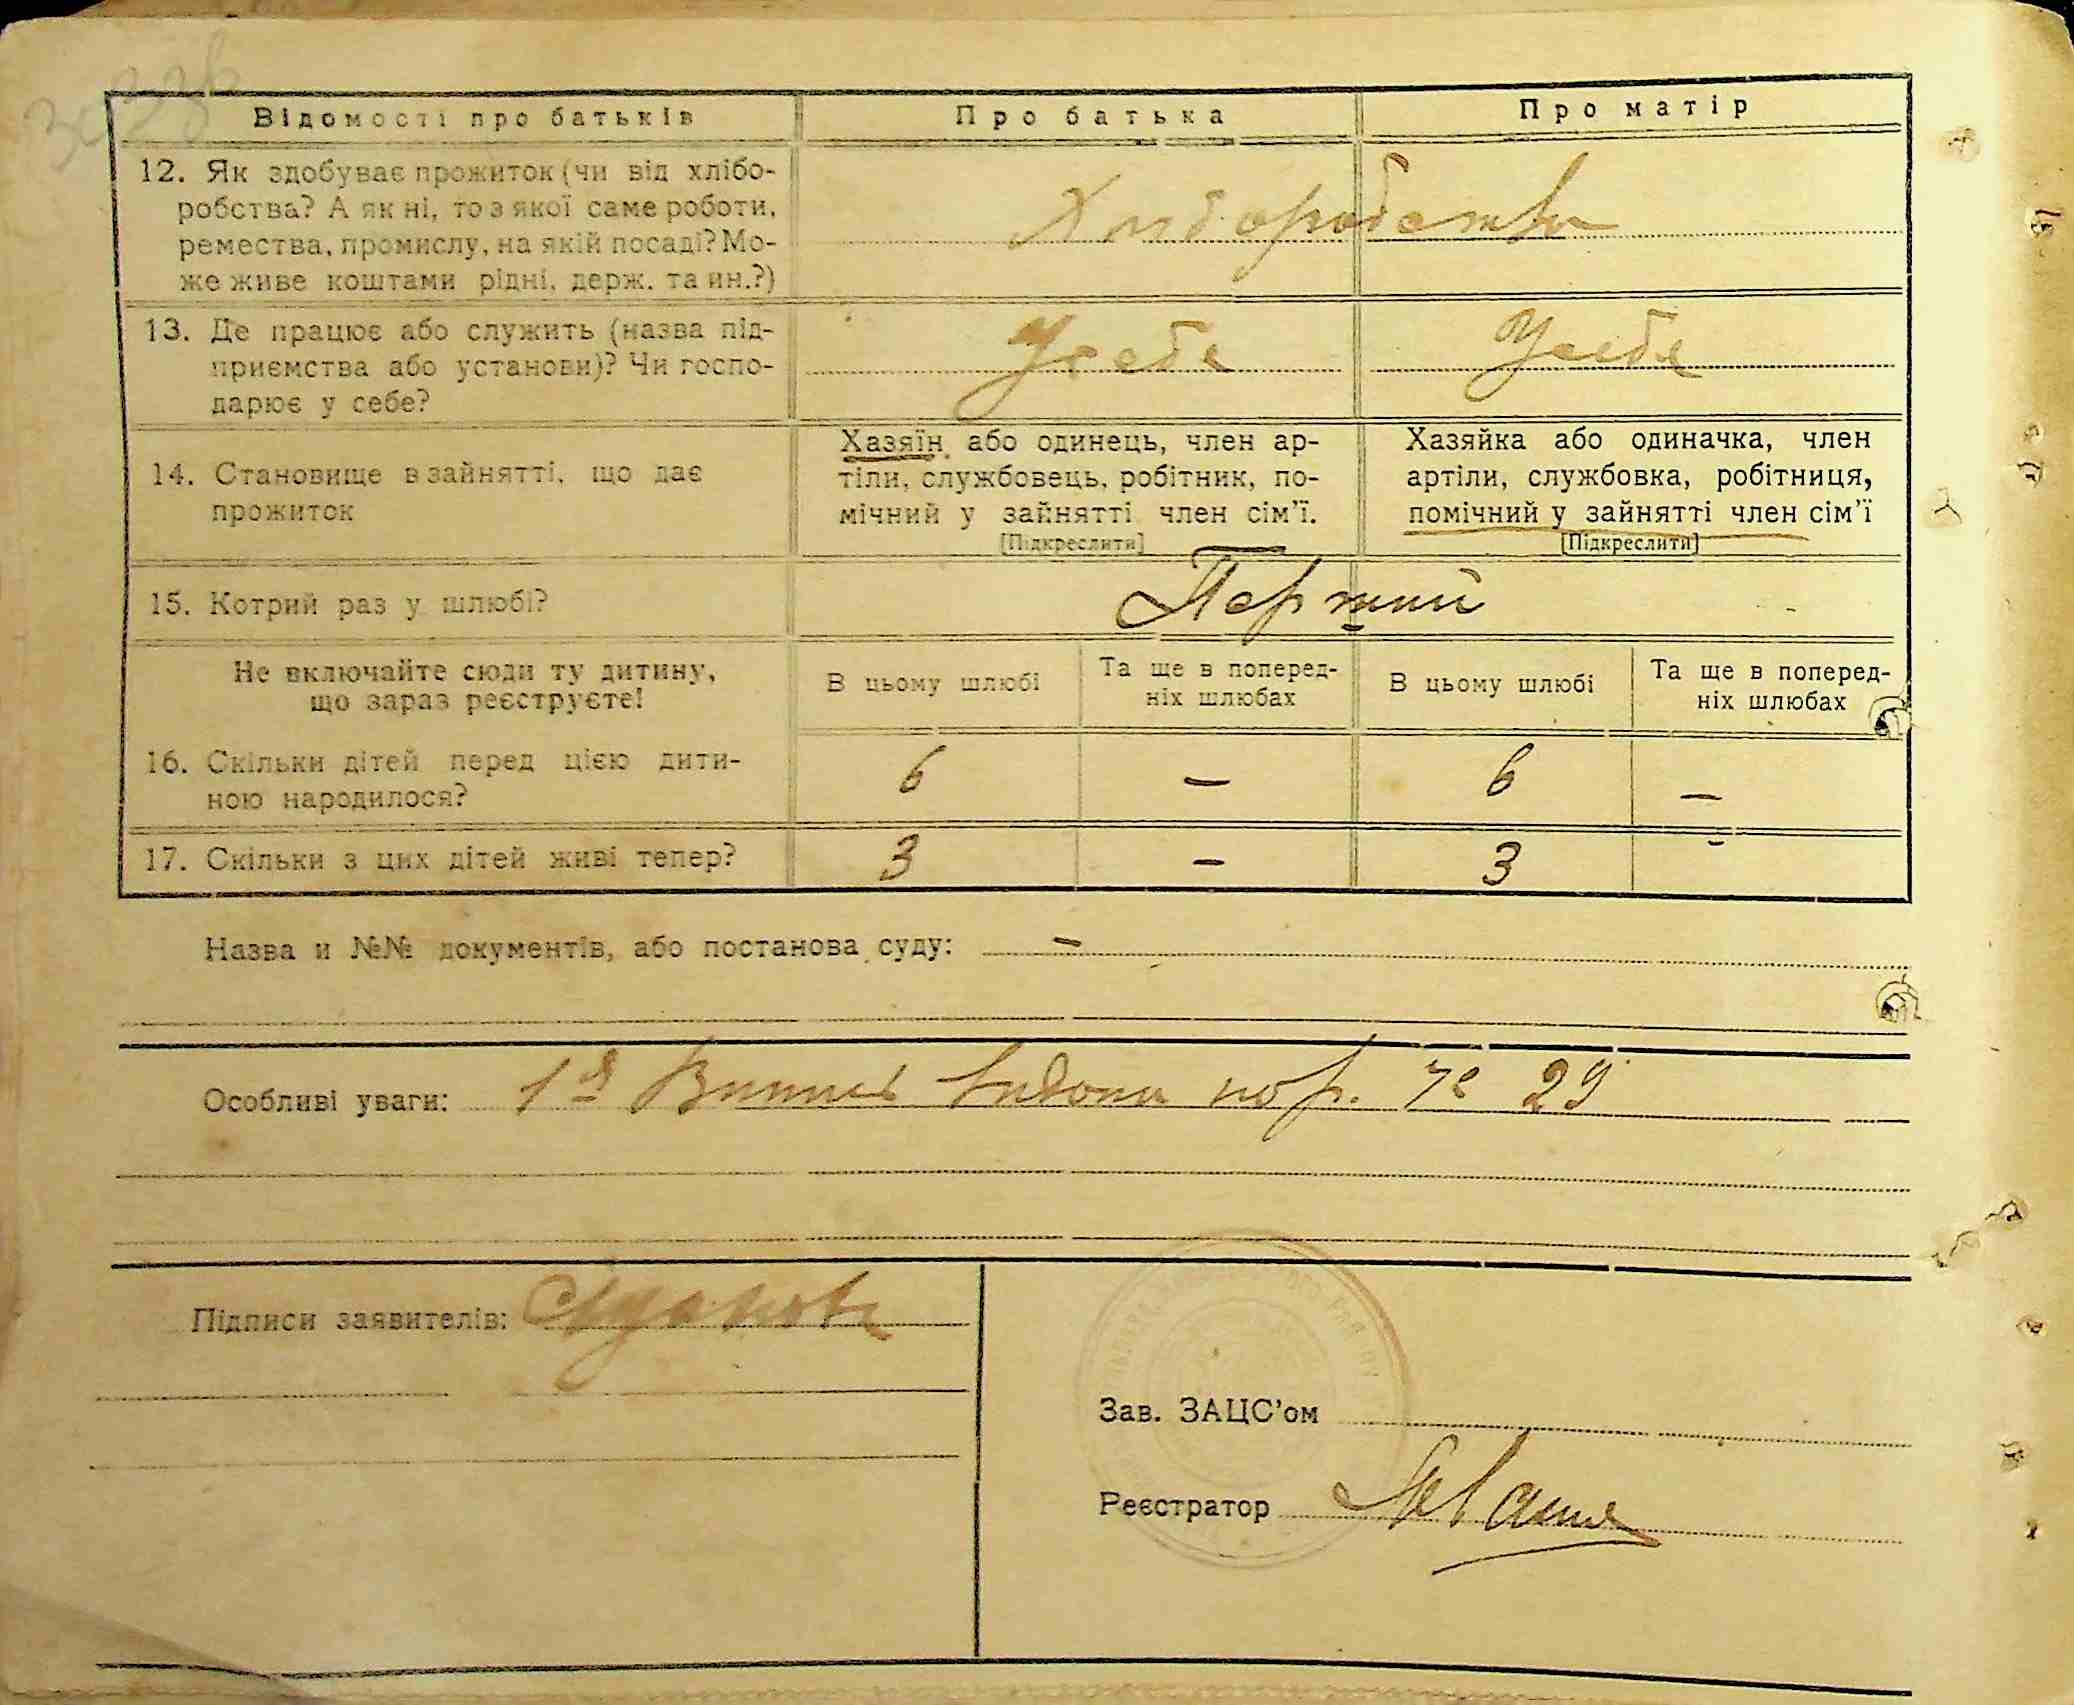 Відомості про батьків Про батька Про матір
12. Як здобуває прожиток (чи від хлібо-
робства? А як ні, то з якої саме роботи,
ремества, промислу, на якій посаді? Мо-
же живе коштами рідні, держ. та ин.?)
Хліборобство
13. Де працює або служить (назва під-
приємства або установи)? Чи госпо-
дарює у себе?
У себе У себе
14. Становище в зайнятті, що дає
прожиток
Хазяїн або одинець, член ар-
тіли, службовець, робітник, по-
мічний у зайнятті член сім'ї.
[Підкреслити]
Хазяйка або одиначка, член
артіли, службовка, робітниця,
помічний у зайнятті член сім'ї
[Підкреслити]
15. Котрий раз у шлюбі? Перший
Не включайте сюди ту дитину,
що зараз реєструєте!
В цьому шлюбі
Та ще в поперед-
ніх шлюбах
В цьому шлюбі
Та ще в поперед-
ніх шлюбах
16. Скільки дітей перед цією дити-
ною народилося?
6 — 6 —
17. Скільки з цих дітей живі тепер? 3 — 3 -
Назва и №№ документів, або постанова суду: —
Особливі уваги: 29
Підписи заявителів:
Зав. ЗАЦС'ом
Реєстратор